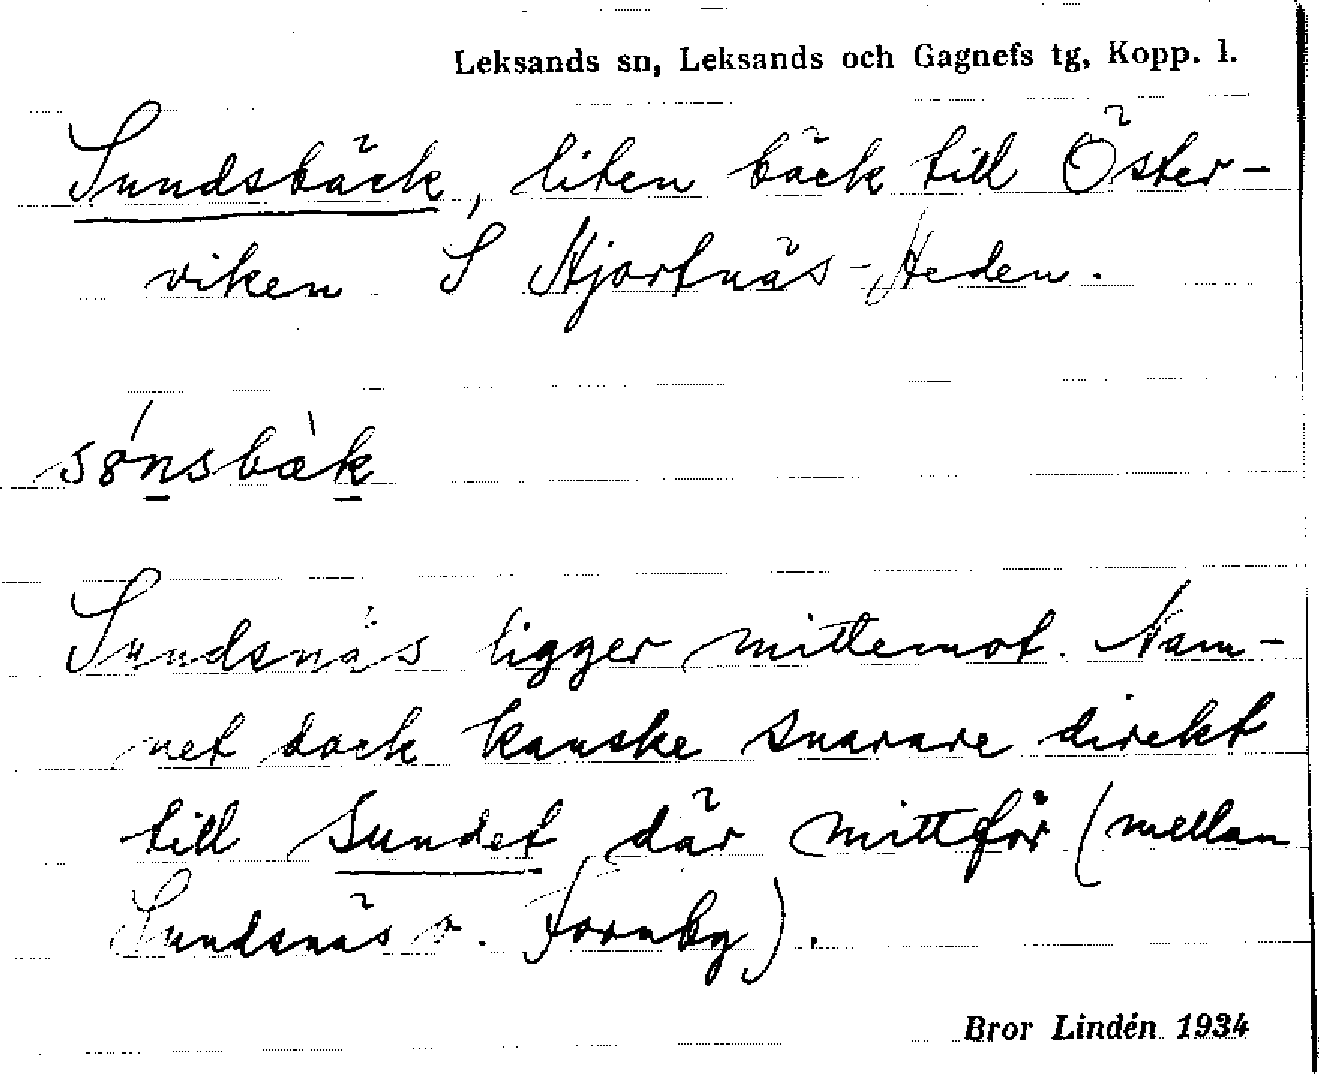 Leksands sn, Leksands och Gagnefs tg, Kopp. l.
Sundsbäck, liten bäck till Öster-
viken S Hjortnäs-Heden.
Sundsnäs ligger mittemot. Nam-
net dock kanske snarare direkt
till Sundet där mittför (mellan
Sundsnäs o. Tornby).
Bror Lindén 1934